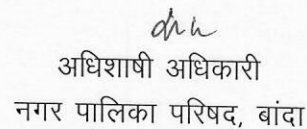 अधिशाषी अधिकारी
नगर पालिका परिषद, बांदा